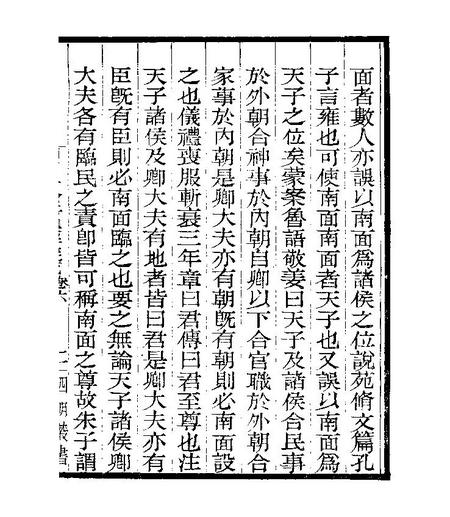 面者數人亦誤以南面爲諸侯之位說苑脩文篇孔
子言雍也可使南面南面者天子也又誤以南面爲
天子之位矣蒙案魯語敬姜曰天子及諸侯合民事
於外朝合神事於內朝自卿以下合官職於外朝合
家事於內朝是卿大夫亦有朝旣有朝則必南面設
之也儀禮喪服斬衰三年章曰君傳曰君至尊也注
天子諸侯及卿大夫有地者皆曰君是卿大夫亦有
臣旣有臣則必南面臨之也要之無論天子諸侯卿
大夫各有臨民之責卽皆可稱南面之尊故朱子謂
四明叢書